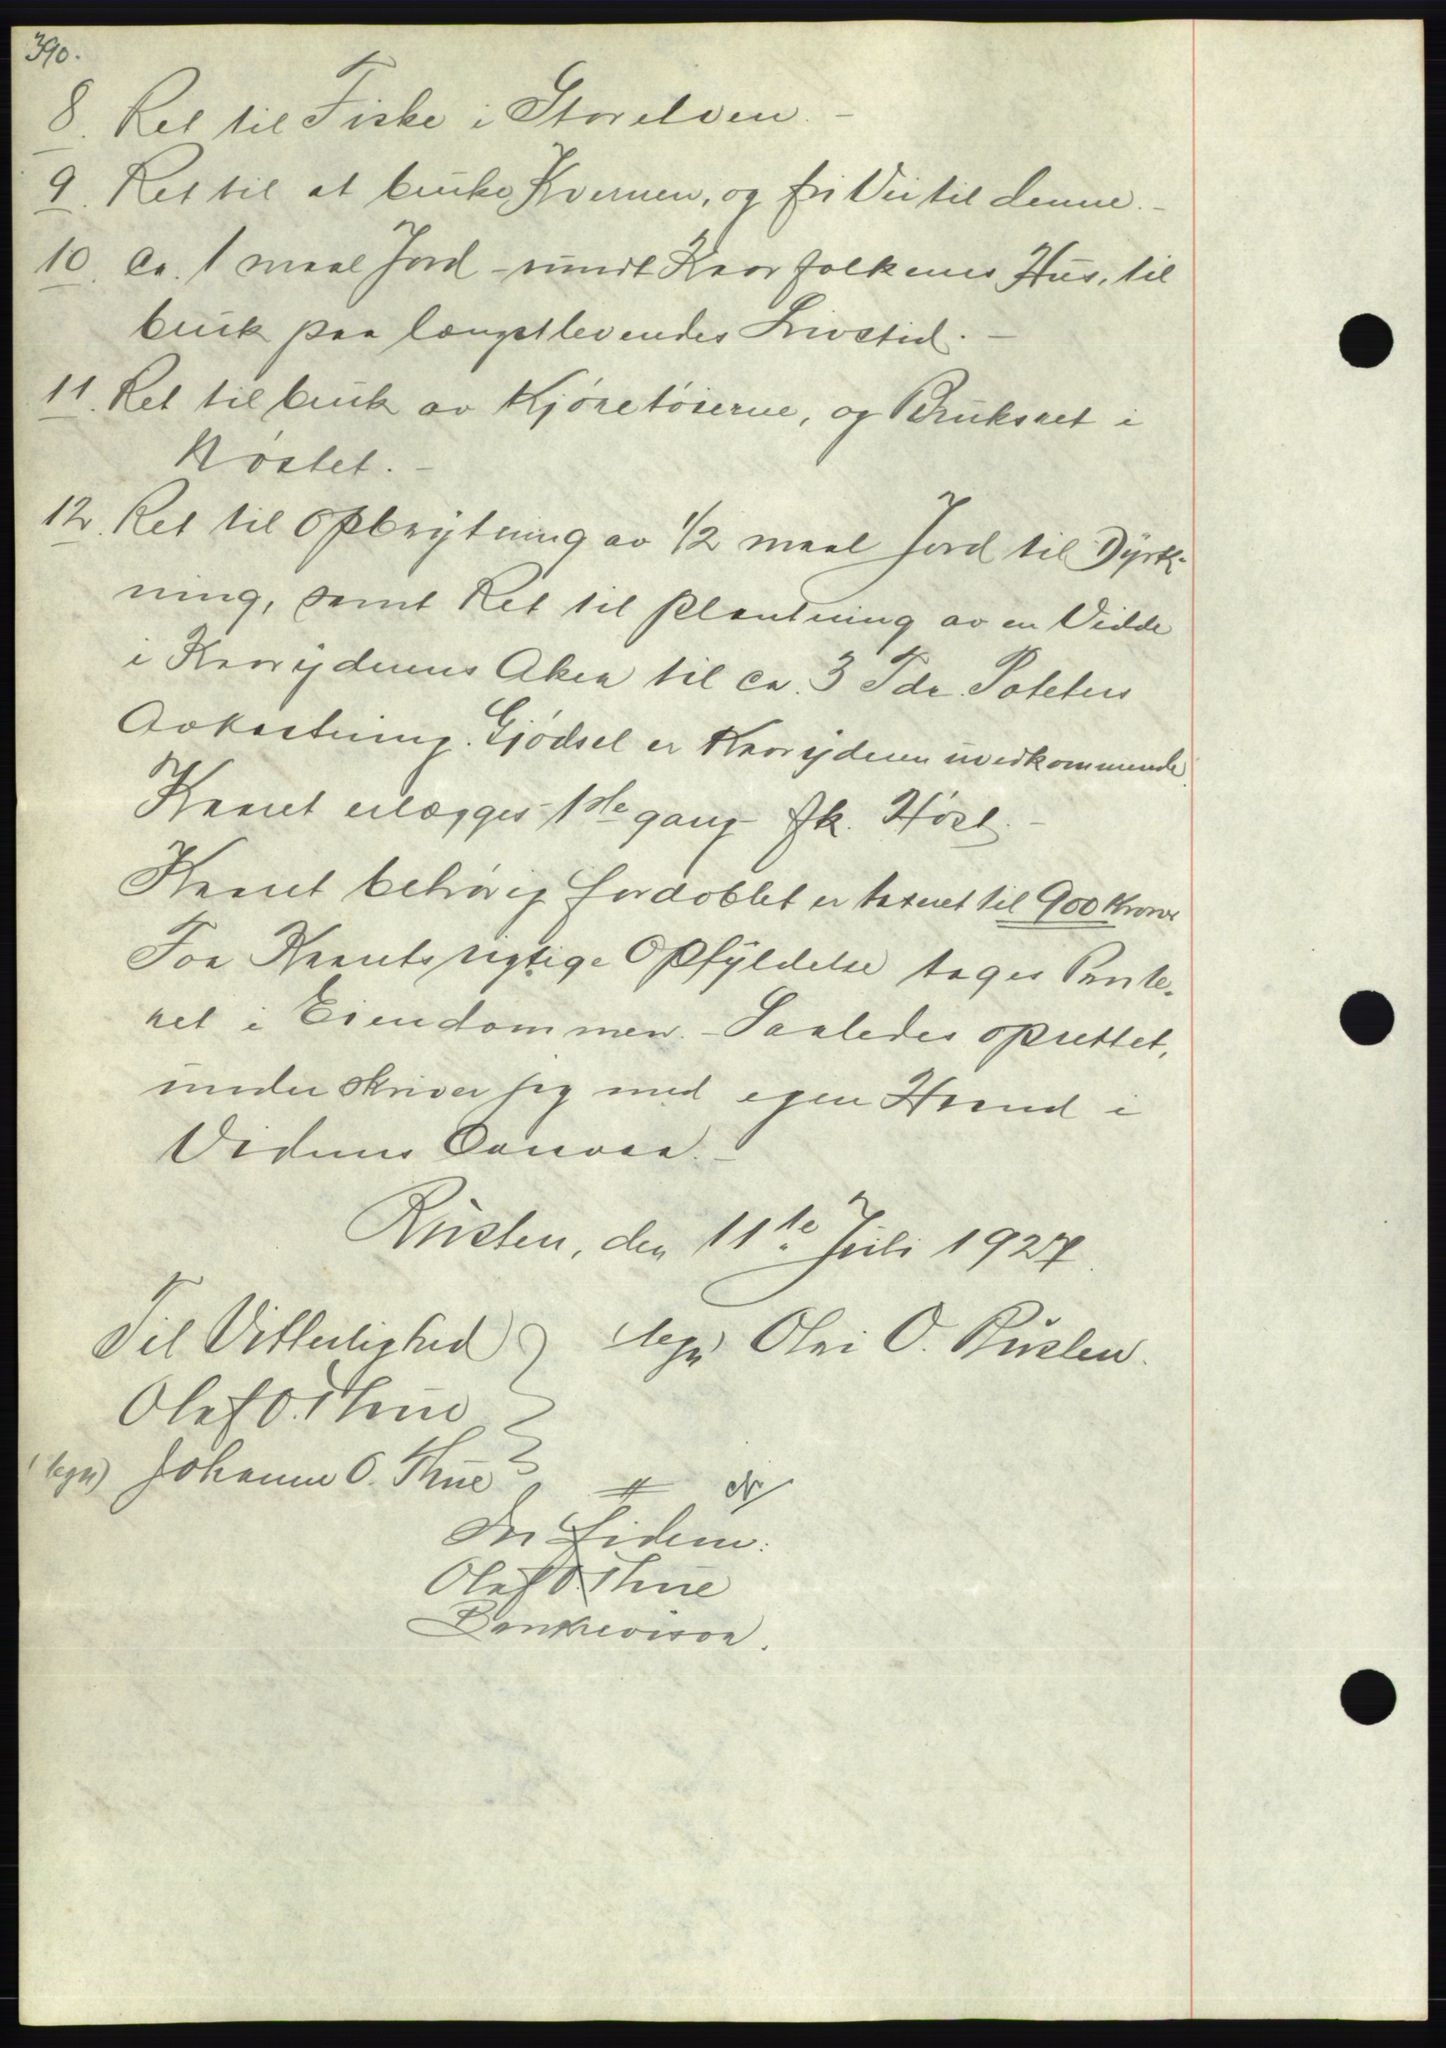 390.
8. Ret til Fiske i Storelven. -
9. Ret til at bruke Kvernen, og fri Vei til denne. -
10. Ca. 1 maal Jord - rundt Kaarfolkenes Hus, til
bruk paa længstlevendes Livstid. -
11. Ret til bruk av Kjøretøierne, og Bruksret i
Nøstet. -
12. Ret til Opbrytning av 1/2 maal Jord til Dyrk-
ning, samt Ret til plantning av en Vidde
i Kaaryderens Aker til ca. 3 Tdr. Poteters
Avkastning. Gjødsel er Kaaryderen uvedkommende.
Kaaret erlægges 1ste gang fk. Høst. -
Kaaret behørig fordoblet er taxeret til 900 Kroner
For Kaarets rigtige Opfyldelse tages Pante-
ret i Eiendommen. - Saaledes oprettet,
underskriver jeg med egen Haand i
Vidners Overvær. -
Rusten, den 11te Juli 1927.
Til Vitterlighed (tegn) Olai O. Rusten.
Olaf O. Thue
(tegn) Johanne O. Thue
In Fidem:
Olaf O. Thue
Bankrevisor.